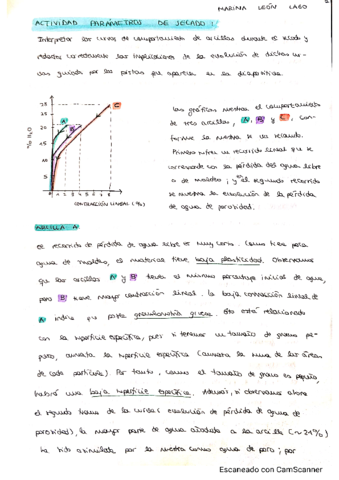 MARINA LEÓN LAGO
ACTIVIDAD PARÁMETROS DE SECADO 1:
Interpretar las curvas de comportamiento de arcillas durante el secado y
redactar correctamente las implicaciones de la evolución de dichas cur-
vas guiado por las pistas que aparecen en la diapositiva.
% H2O
A B C
CONTRACCIÓN LINEAL (%)
Las gráficas muestran el comportamiento
de tres arcillas, A, B y C, con-
forme la muestra se va secando.
Primero sufren un recorrido lineal que se
corresponde con la pérdida del agua libre
o de moldeo; y en el segundo recorrido
se muestra la evolución de la pérdida
de agua de porosidad.
ARCILLA A:
El recorrido de pérdida de agua libre es muy corto. Como tiene poca
agua de moldeo, el material tiene baja plasticidad. Observamos
que las arcillas A y B tienen el mismo porcentaje inicial de agua,
pero B tiene mayor contracción lineal. La baja contracción lineal de
A indica que posee granulometría gruesa. Esto está relacionado
con la superficie específica, pues si tenemos un tamaño de grano pe-
queño, aumenta la superficie específica (aumenta la suma de las áreas
de cada partícula). Por tanto, como el tamaño de grano es
habrá una baja superficie específica. Además, si observamos ahora
el segundo tramo de la curva (evolución de pérdida de agua de
porosidad), la mayor parte de agua añadida a la arcilla (~21%)
ha sido asimilada por la muestra como agua de poro; por
Escaneado con CamScanner